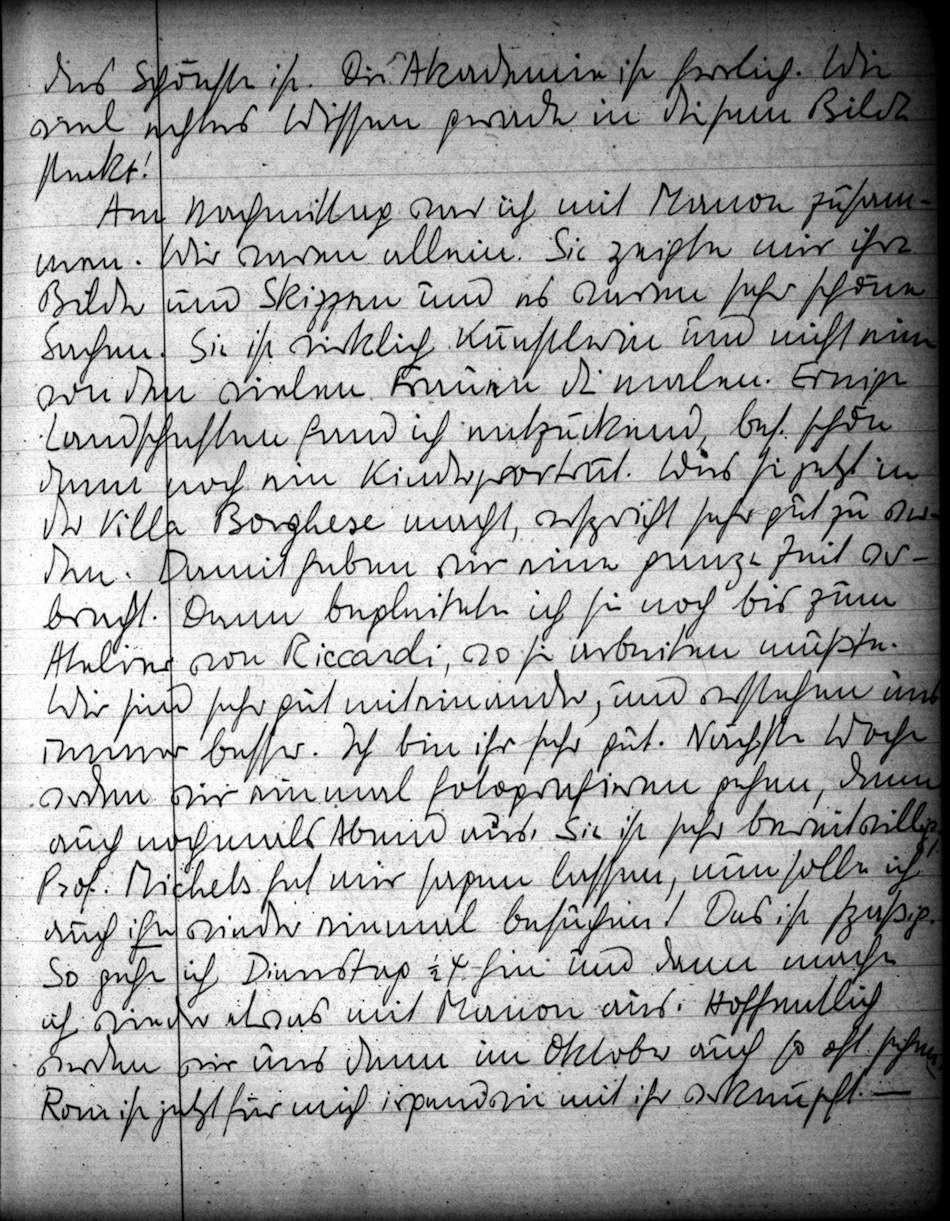 das Schönste ist. Die Akademie ist herrlich. Wie
viel echtes Wissen gerade in diesem Bilde
steckt!
Am Nachmittag war ich mit Manon zusam-
men. Wir waren allein. Sie zeigte mir ihre
Bilder und Skizzen und es waren sehr schöne
Sachen. Sie ist wirklich Künstlerin und nicht eine
von den vielen Frauen die malen. Einige
Landschaften fand ich entzückend, bes. schön
dann noch ein Kinderporträt. Was sie jetzt in
der Villa Borghese macht, verspricht sehr gut zu wer-
den. Damit haben wir eine ganze Zeit ver-
bracht. Dann begleitete ich sie noch bis zum
Atelier von Riccardi, wo sie arbeiten mußte.
Wir sind sehr gut miteinander, und verstehen uns
immer besser. Ich bin ihr sehr gut. Nächste Woche
werden wir einmal fotografieren gehen, dann
auch nochmals Abend aus. Sie ist sehr bereitwillig.
Prof. Michels hat mir sagen lassen, nun solle ich
auch ihn wieder einmal besuchen! Das ist spaßig.
So gehe ich Dienstag ½4 hin und dann mache
ich wieder etwas mit Manon aus. Hoffentlich
werden wir uns dann im Oktober auch so oft sehen.
Rom ist jetzt für mich irgendwie mit ihr verknüpft. —